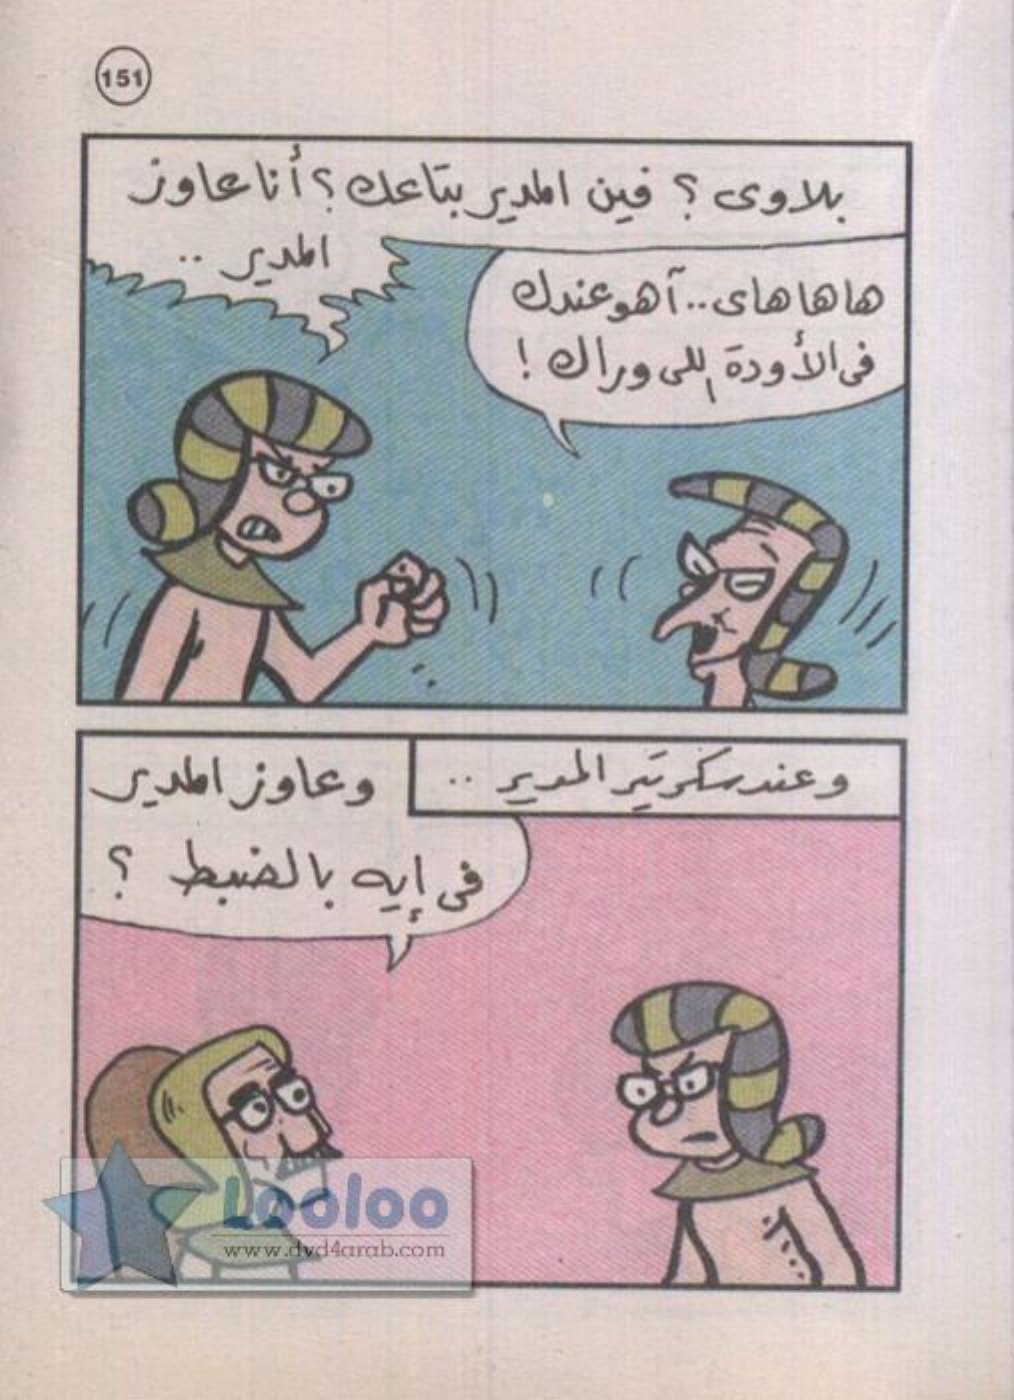 151
بلاوى ؟ فين المدير بتاعك ؟ أنا عاوز
المدير ..
ها ها هاى .. آهو عندك
فى الأودة اللى وراك !
وعند سكرتير المدير ..
وعاوز المدير
فى إيه بالضبط ؟
Looloo
www.dvd4arab.com